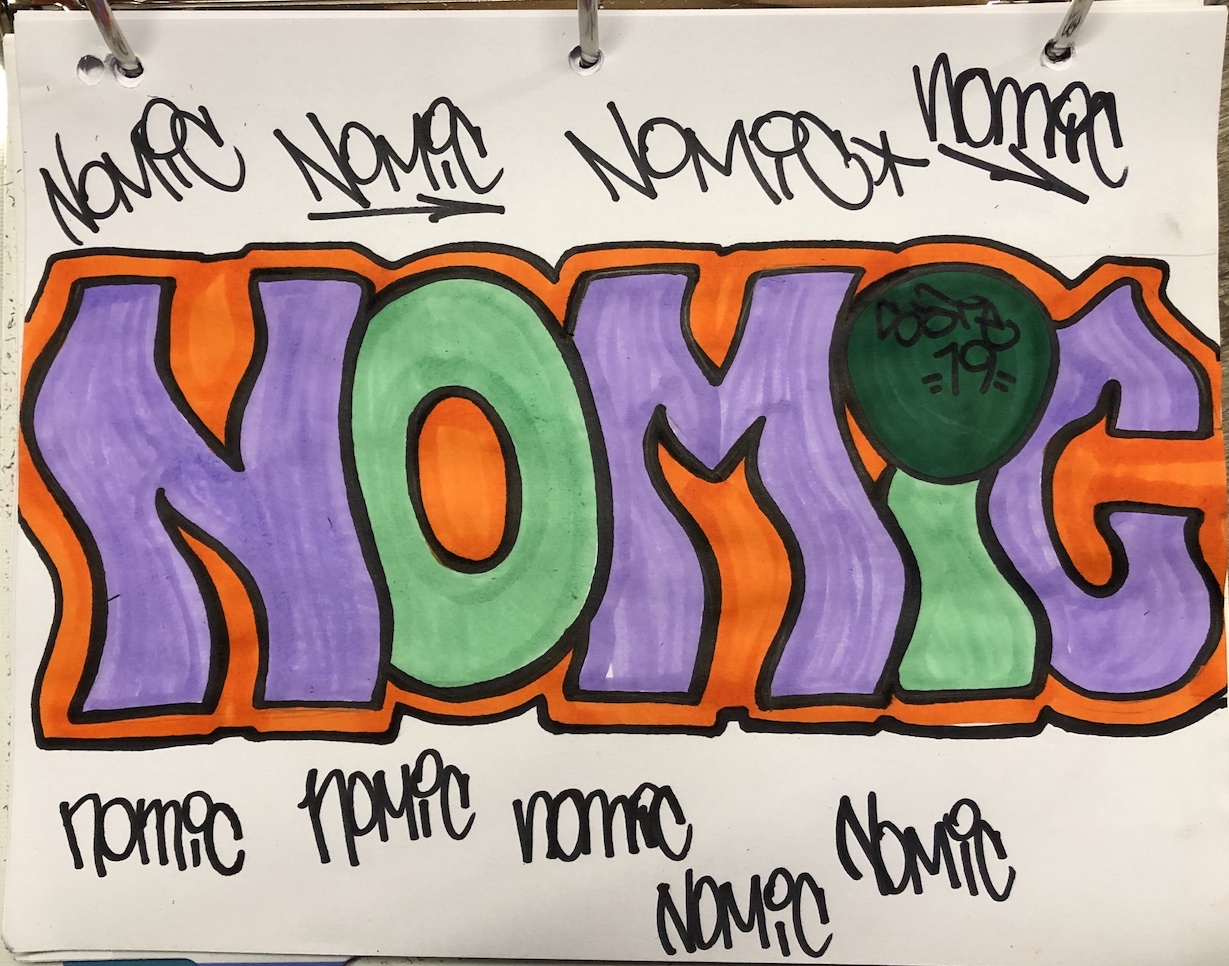 NoMiC NoMiC NoMiC* nomiC
NOMiC
"19"
nomiC noMiC nomiC NoMiC
NoMiC